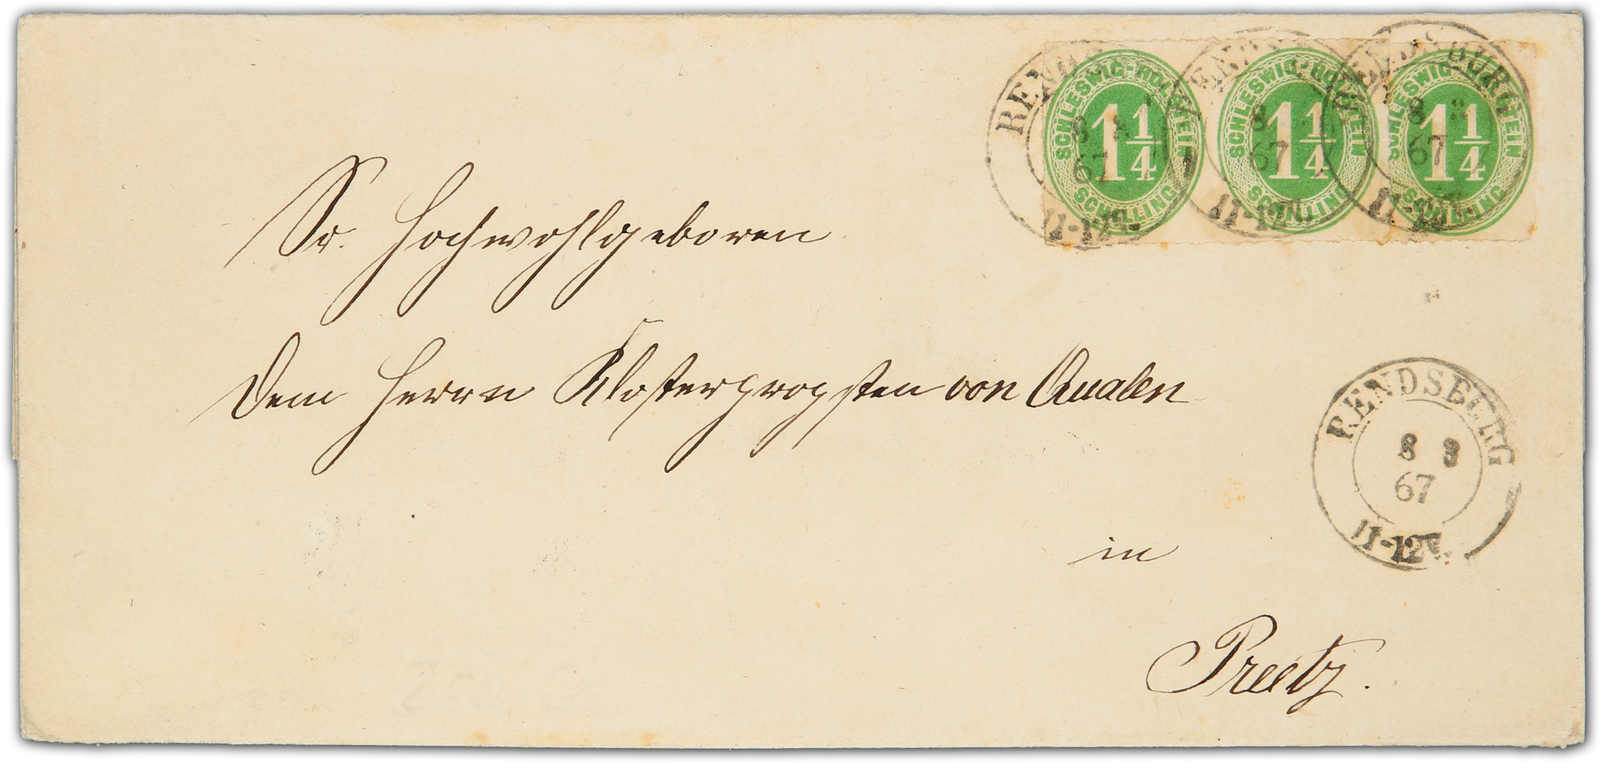 SCHLESWIG-HOLSTEIN 1 1/4 SCHILLING
SCHLESWIG-HOLSTEIN 1 1/4 SCHILLING
SCHLESWIG-HOLSTEIN 1 1/4 SCHILLING
RENDSBURG
8 3
67
11-12V.
Sr. Hochwohlgeboren
Dem Herrn Klosterpropsten von Qualen
RENDSBURG
8 3
67
11-12V.
in
Preetz.